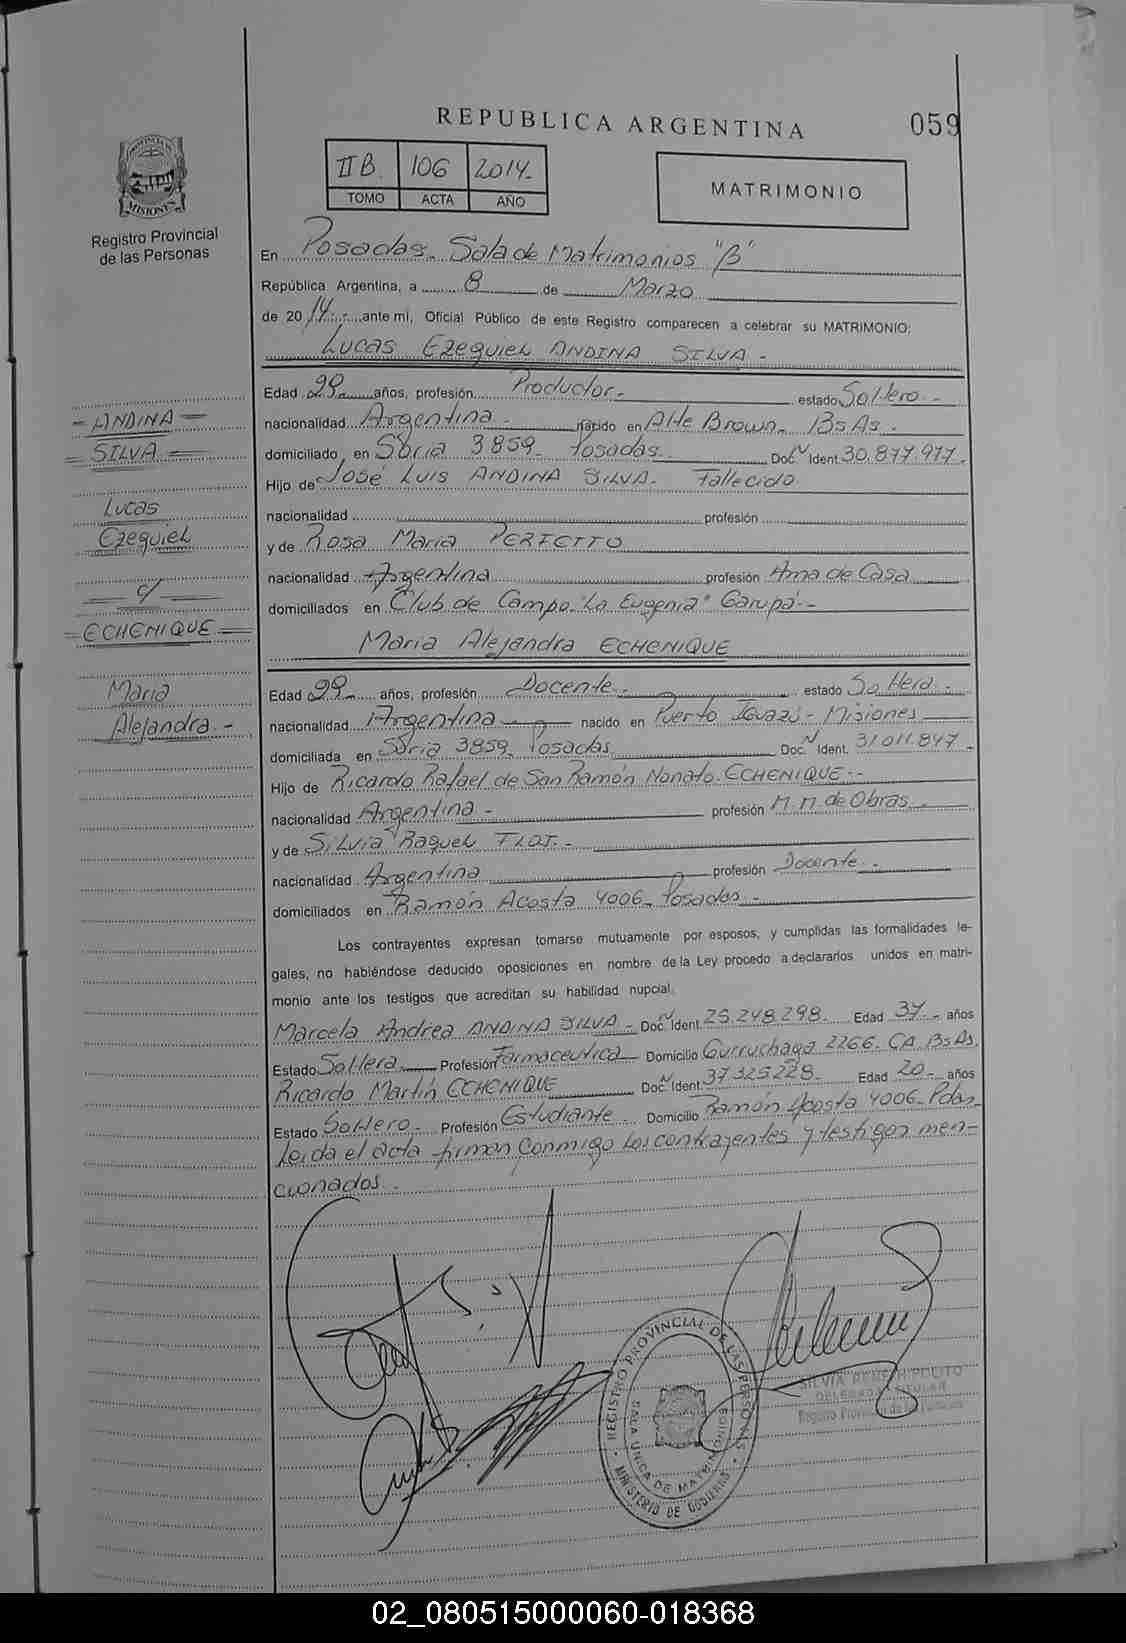 REPUBLICA ARGENTINA
059
II B. 106 2014.-
TOMO ACTA AÑO
MATRIMONIO
PROVINCIA DE MISIONES
Registro Provincial
de las Personas
En Posadas. Sala de Matrimonios "B"
República Argentina, a 8 de Marzo
de 20 14.- ante mí, Oficial Público de este Registro comparecen a celebrar su MATRIMONIO:
Lucas Ezequiel ANDINA SILVA -
Edad 29 años, profesión Productor.- estado Soltero.-
nacionalidad Argentina.- nacido en Alte Brown. BsAs.-
domiciliado en Soria 3859. Posadas. Doc. N Ident. 30.877.977.
Hijo de José Luis ANDINA SILVA. Fallecido.
nacionalidad profesión
y de Rosa María PERFETTO
nacionalidad Argentina profesión Ama de Casa
domiciliados en Club de Campo. "La Eugenia" Garupá.-
Maria Alejandra ECHENIQUE
Edad 29 años, profesión Docente.- estado Soltera.-
nacionalidad Argentina nacido en Puerto Iguazú - Misiones
domiciliada en Soria 3859. Posadas Doc. N Ident. 31.011.847 -
Hijo de Ricardo Rafael de San Ramón Nonato. ECHENIQUE.-
nacionalidad Argentina.- profesión M.M. de Obras.
y de Silvia Raquel
nacionalidad Argentina profesión Docente.-
domiciliados en Ramón Acosta 4006. Posadas.-
Los contrayentes expresan tomarse mutuamente por esposos, y cumplidas las formalidades le-
gales, no habiéndose deducido oposiciones en nombre de la Ley procedo a declararlos unidos en matri-
monio ante los testigos que acreditan su habilidad nupcial.
Marcela Andrea ANDINA SILVA.- Doc. N Ident. 25.248.298. Edad 37.- años
Estado Soltera Profesión Farmaceutica Domicilio Gurruchaga 2266. CA BsAs.
Ricardo Martín ECHENIQUE Doc. N Ident. 37.325.228. Edad 20.- años
Estado Soltero.- Profesión Estudiante Domicilio Ramón Acosta 4006. Pdas.
Leida el acta firman conmigo los contrayentes y testigos men-
cionados.-
- ANDINA -
SILVA
Lucas
Ezequiel
c/
- ECHENIQUE -
Maria
Alejandra.-
REGISTRO PROVINCIAL DE LAS PERSONAS
SALA UNICA DE MATRIMONIOS
MINISTERIO DE GOBIERNO
SILVIA RENE HIPOLITO
DELEGADA TITULAR
Registro Provincial de las Personas
02_080515000060-018368